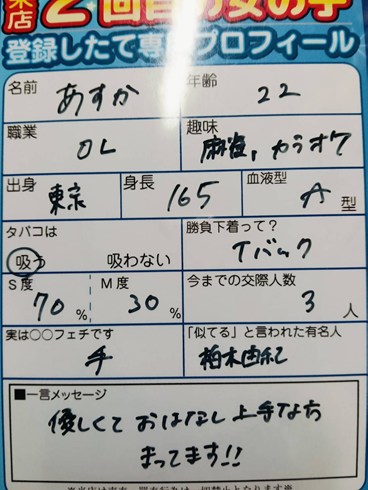 来店2回目の女の子
登録したて専用プロフィール
名前 あすか 年齢 22
職業 OL 趣味 麻雀、カラオケ
出身 東京 身長 165 血液型 A 型
タバコは 勝負下着って?
吸う 吸わない Tバック
S度 M度 今までの交際人数
70 % 30 % 3 人
実は○○フェチです 「似てる」と言われた有名人
手 柏木由紀
■一言メッセージ
優しくておはなし上手な方
まってます!!